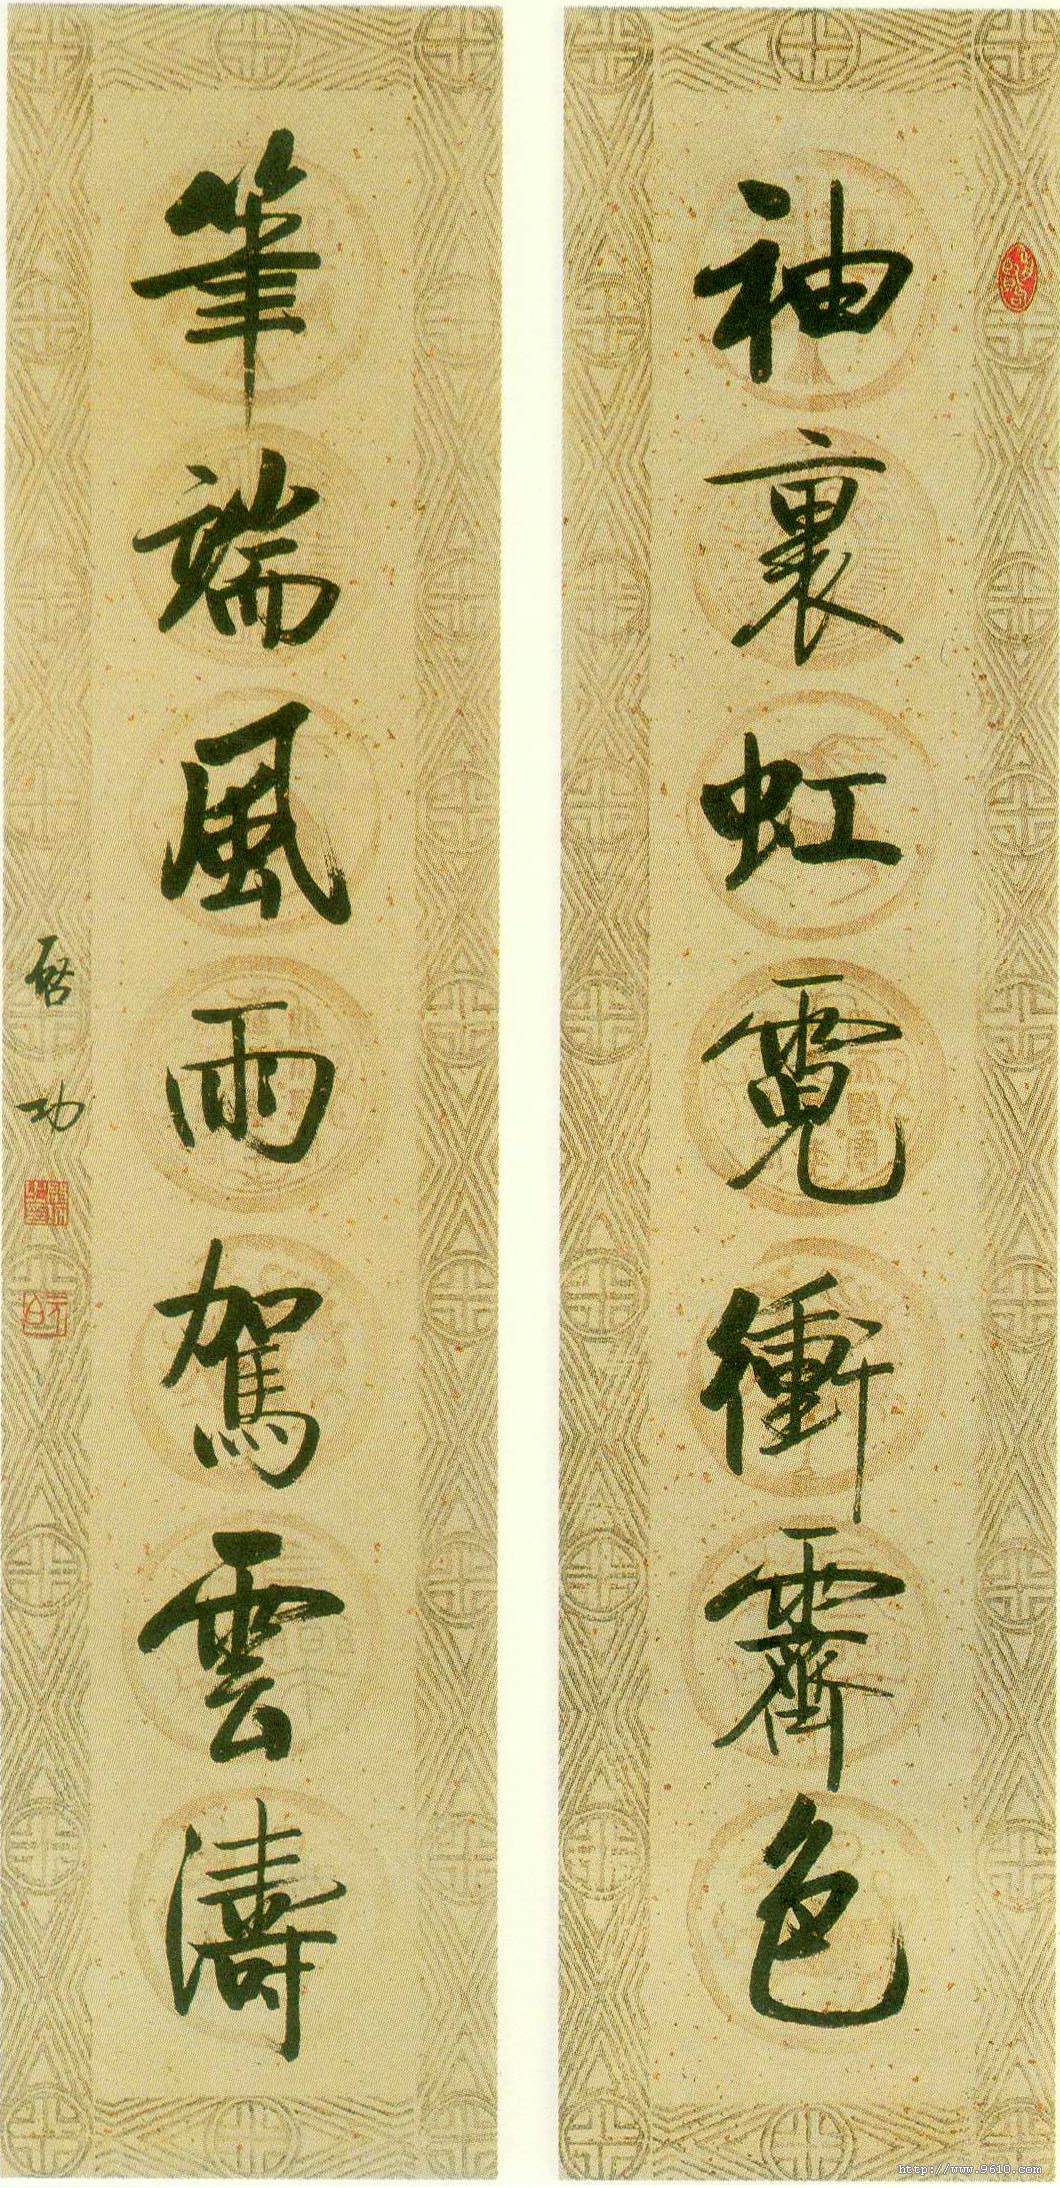 袖裏虹霓衝霽色
筆端風雨駕雲濤
啓功
http://www.9610.com